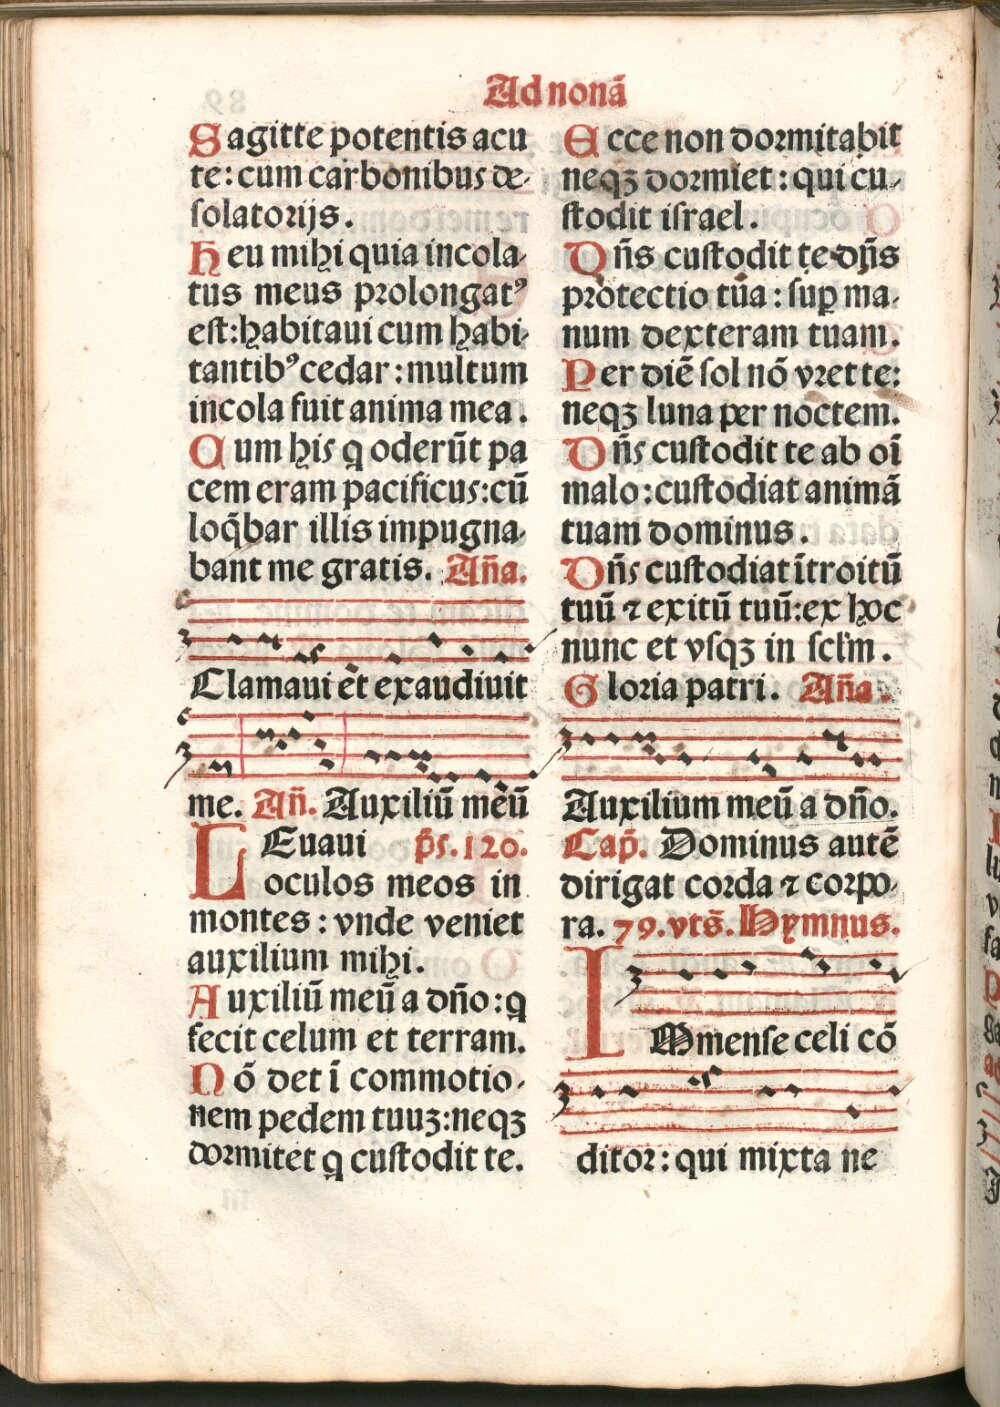 Ad nonā
Sagitte potentis acu
te: cum carbonibus de-
solatorijs.
Heu mihi quia incola-
tus meus prolongatꝰ
est: habitaui cum habi-
tantibꝰ cedar: multum
incola fuit anima mea.
Cum his q oderūt pa
cem eram pacificus: cū
loq̄bar illis impugna-
bant me gratis. Añā.
Clamaui et exaudiuit
me. Añ. Auxiliū meū
LEuaui p̄s. 120.
oculos meos in
montes: vnde veniet
auxilium mihi.
Auxiliū meū a dño: q
fecit celum et terram.
Nō det ī commotio-
nem pedem tuuʒ: neqʒ
dormitet q custodit te.
Ecce non dormitabit
neqʒ dormiet: qui cu-
stodit israel.
Dñs custodit te dñs
protectio tūa: suꝑ ma-
num dexteram tuam.
Per diē sol nō vret te:
neqʒ luna per noctem.
Dñs custodit te ab oī
malo: custodiat animā
tuam dominus.
Dñs custodiat ītroitū
tuū ⁊ exitū tuū: ex hoc
nunc et vsqʒ in scľm.
Gloria patri. Añā
Auxilium meū a dño.
Cap̄. Dominus autē
dirigat corda ⁊ corpo-
ra. 79. vts̄. Hymnus.
IMmense celi cō
ditor: qui mixta ne